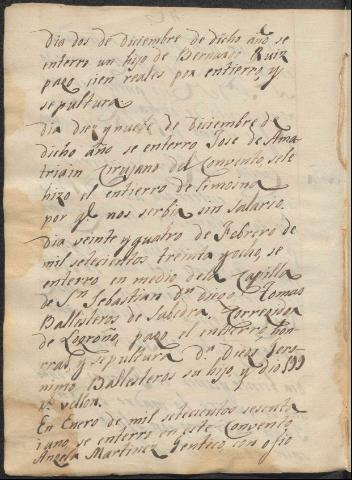 Dia dos de Diciembre de dicho año, se
enterro un hijo de Bernardo Ruiz
pago cien reales por entierro, y
sepultura
Dia diez y nuebe de Diciembre de
dicho año se enterro Jose de Ama
triain Zirujano del Convento, se le
hizo el entierro de limosna
por q.e nos serbia sin salario.
Dia veinte y quatro de Febrero de
mil setecientos treinta y ocho, se
enterro en medio de la Capilla
de S.n Sebastian D.n Diego Tomas
Ballesteros de Sabedra, Corregidor
de Logroño, pago el entierro, hon
rras, y sepultura D.n Diego Jero
nimo Ballesteros su hijo, y dio
r.s vellon.
En Enero de mil setecientos sesenta
i uno, se enterro en este Convento
Angela Martinez Jentico, con ofio